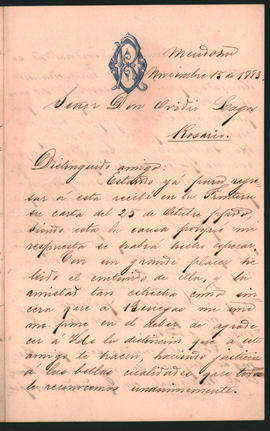 Mendoza
Noviembre 15 de 1883.
Señor Don Ovidio Lagos
Rosario.
Distinguido amigo:
Estando ya para regre-
sar á esta recibí en la
su carta del 25 de Octubre ppdo,
siendo esta la causa porque mi
respuesta se habrá hecho esperar.
Con un grande placer he
leido el contenido de ella, y la
amistad tan estrecha como sin-
cera que á Benegas me une
me pone en el deber de agrade-
cer á Vds la distincion que á este
amigo le hacen, haciendo justicia
á las bellas cualidades que
le reconocemos unánimemente.